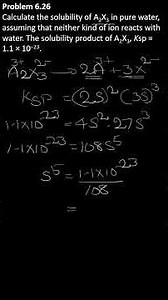 Problem 6.26
Calculate the solubility of A₂X₃ in pure water,
assuming that neither kind of ion reacts with
water. The solubility product of A₂X₃, Ksp =
1.1 × 10⁻²³.
A₂³⁺X₃²⁻ → 2A³⁺ + 3X²⁻
KSP = (2S)² (3S)³
1·1×10⁻²³ = 4S² 27S³
1·1×10⁻²³ = 108S⁵
S⁵ = 1·1×10⁻²³
108
=